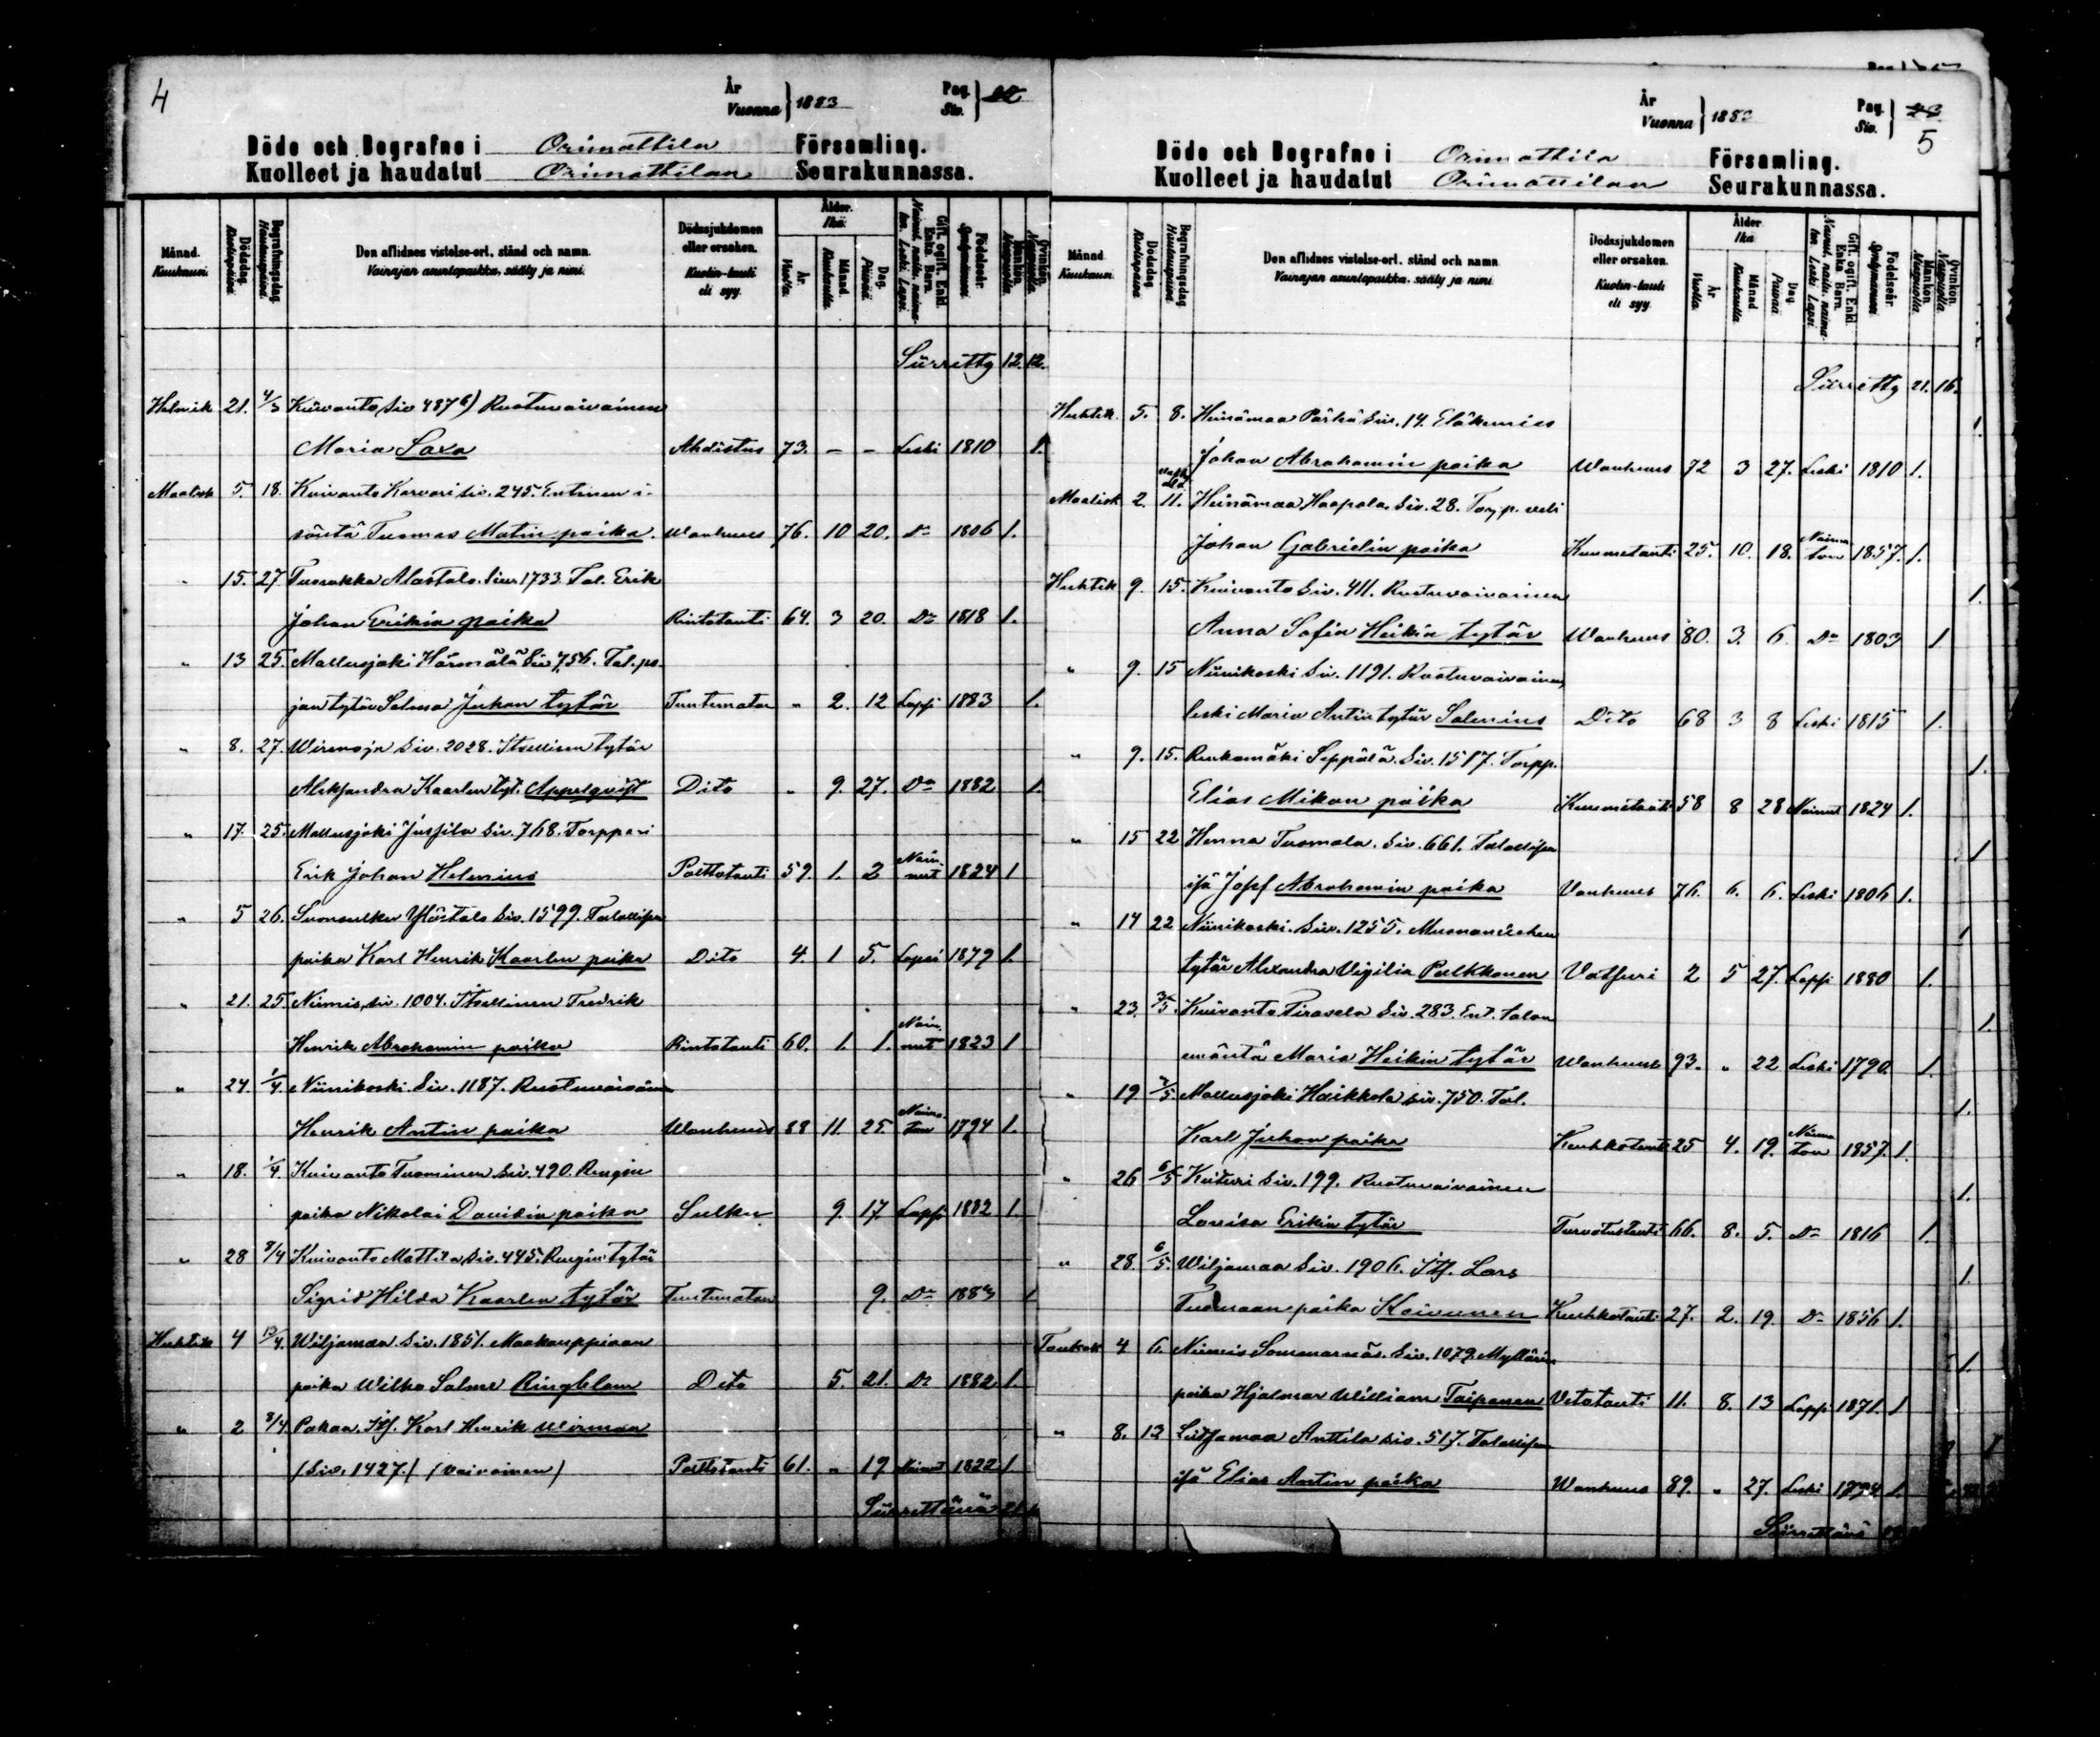 4
År
Vuonna } 1883
Pag.
Siv. } 22
Döde och Begrafne i Orimattila Församling.
Kuolleet ja haudatut Orimattilan Seurakunnassa.
Månad. Kuukausi.
Dödsdag. Kuolinpäivä.
Begrafningsdag. Hautauspäivä.
Den aflidnes vistelse-ort, stånd och namn.
Vainajan asuntopaikka, sääty ja nimi.
Dödssjukdomen eller orsaken.
Kuolin-tauti eli syy.
Ålder. Ikä.
År. Vuotta.
Månad. Kuukautta.
Dag. Päivää.
Gift, ogift, Enkl. Enka, Barn.
Nainut, naitu, naimaton. Leski. Lapsi.
Födelseår. Syntymävuosi.
Mankön. Miespuolia.
Qvinkön. Naispuolia.
Siirretty 12. 12.
Helmik 21. 4/3 Kuivanto, Siv 487 b) Ruotuvaivainen
Maria Saxa Ahdistus 73. – – Leski 1810 1.
Maalisk 5. 18. Kuivanto Karvari Siv. 245. Entinen i-
säntä Tuomas Matin poika. Wanhuus 76. 10 20. Do 1806 1.
" 15. 27. Tuorakka Alastalo. Siv. 1733. Tal. Erik
Johan Erikin poika Rintatauti 64. 3 20. Do 1818 1.
" 13 25. Mallusjoki Härmälä Siv 756. Tal. po-
jan tytär Selma Juhan tytär Tuntematon " 2. 12 Lapsi 1883 1.
" 8. 27. Wirenoja Siv. 2028. Itsellisen tytär
Aleksandra Kaarlen tyt. Appelqvist Dito " 9. 27. Do 1882 1.
" 17. 25. Mallusjoki Jussila Siv. 768. Torppari
Erik Johan Helenius Polttotauti 59. 1. 2 Nainut 1824 1
" 5 26. Suonsulku Ylöstalo Siv. 1599. Talollisen
poika Karl Henrik Kaarlen poika Dito 4. 1 5. Lapsi 1879 1.
" 21. 25. Niimis, Siv. 1004. Itsellinen Fredrik
Henrik Abrahamin poika Rintatauti 60. 1. 1. Nainut 1823 1
" 24. 1/4. Niinikoski Siv. 1187. Ruotuvaivainen
Henrik Antin poika Wanhuus 88 11. 25. Naimaton 1794 1.
" 18. 1/4. Kuivanto Tuominen Siv. 490. Rengin
poika Nikolai Davidin poika Sulku 9. 17. Lapsi 1882 1.
" 28 8/4 Kuivanto Mattila Siv. 445. Rengin tytär
Sigrid Hilda Kaarlen tytär Tuntematon 9. Do 1883 1
Huhtik 4 15/4. Wiljamaa Siv. 1851. Maakauppiaan
poika Wilho Salme Ringblom Dito 5. 21. Do 1882 1.
" 2 8/4 Pakaa. Its. Karl Henrik Wirman
(Siv. 1427.) (vaivainen) Polttotauti 61. " 19 Nainut 1822 1
Siirrettävä 21.
År
Vuonna } 188
Pag.
Siv. } 23
5
Döde och Begrafne i Orimattila Församling.
Kuolleet ja haudatut Orimattilan Seurakunnassa.
Månad. Kuukausi.
Dödsdag. Kuolinpäivä.
Begrafningsdag. Hautauspäivä.
Den aflidnes vistelse-ort, stånd och namn
Vainajan asuntopaikka, sääty ja nimi.
Dödssjukdomen eller orsaken.
Kuolin-tauti eli syy.
Ålder Ikä
År Vuotta
Månad Kuukautta
Dag. Päivää
Gift, ogift, Enkl. Enka Barn.
Nainut, naitu, naimaton. Leski Lapsi
Födelseår. Syntymävuosi
Mankön. Miespuolia
Qvinkön. Naispuolia
Siirretty 21. 16.
Huhtik. 5. 8. Heinämaa Pärhä Siv. 14. Eläkemies
Johan Abrahamin poika Wanhuus 72 3 27. Leski 1810 1.
Maalisk 2. 11. Heinämaa Haapala. Siv. 28. Torp. veli
Johan Gabrielin poika Kuumetauti 25. 10. 18. Naimaton 1857. 1.
Huhtik 9. 15. Kuivanto Siv. 411. Ruotuvaivainen
Anna Sofia Heikin tytär Wanhuus 80. 3. 6. Do 1803 1
" 9. 15 Niinikoski Siv. 1191. Ruotuvaivainen,
leski Maria Antin tytär Salenius Dito 68 3 8 Leski 1815 1.
" 9. 15. Renkomäki Seppälä. Siv. 1587. Torpp.
Elias Mikon poika Kuumetauti 58 8 28 Nainut 1824 1.
" 15 22 Henna Tuomala. Siv. 661. Talollisen
isä Josef Abrahamin poika Vanhuus 76. 6. 6. Leski 1806 1.
" 14 22 Niinikoski. Siv. 1255. Muonamiehen
tytär Alexandra Vigilia Pulkkonen Vatsuri 2 5 27. Lapsi 1880 1.
" 23. 3/5. Kuivanto Pirasela Siv. 283. Ent. talon
emäntä Maria Heikin tytär Wanhuus 93. " 22 Leski 1790. 1.
" 19 /5. Mallusjoki Heikkola Siv. 750. Tal.
Karl Juhan poika Keuhkotauti 25 4. 19. Naimaton 1857. 1.
" 26 6/5 Keituri Siv. 199. Ruotuvaivainen
Lovisa Erikin tytär Turvotustauti 66. 8. 5. Do 1816 1.
" 28. 6/5. Wiljamaa Siv. 1906. Its. Lars
Tuomaan poika Koivunen Keuhkotauti 27. 2. 19. Do 1856 1.
Toukok 4 6. Niimis Sommarnäs. Siv. 1079. Myllärin
poika Hjalmar William Taipanen Vetotauti 11. 8. 13 Lapsi 1871. 1
" 8. 13 Leitsamaa Anttila Siv. 517. Talollisen
isä Elias Antin poika Wanhuus 89. " 27. Leski 1794 1.
Siirrettävä